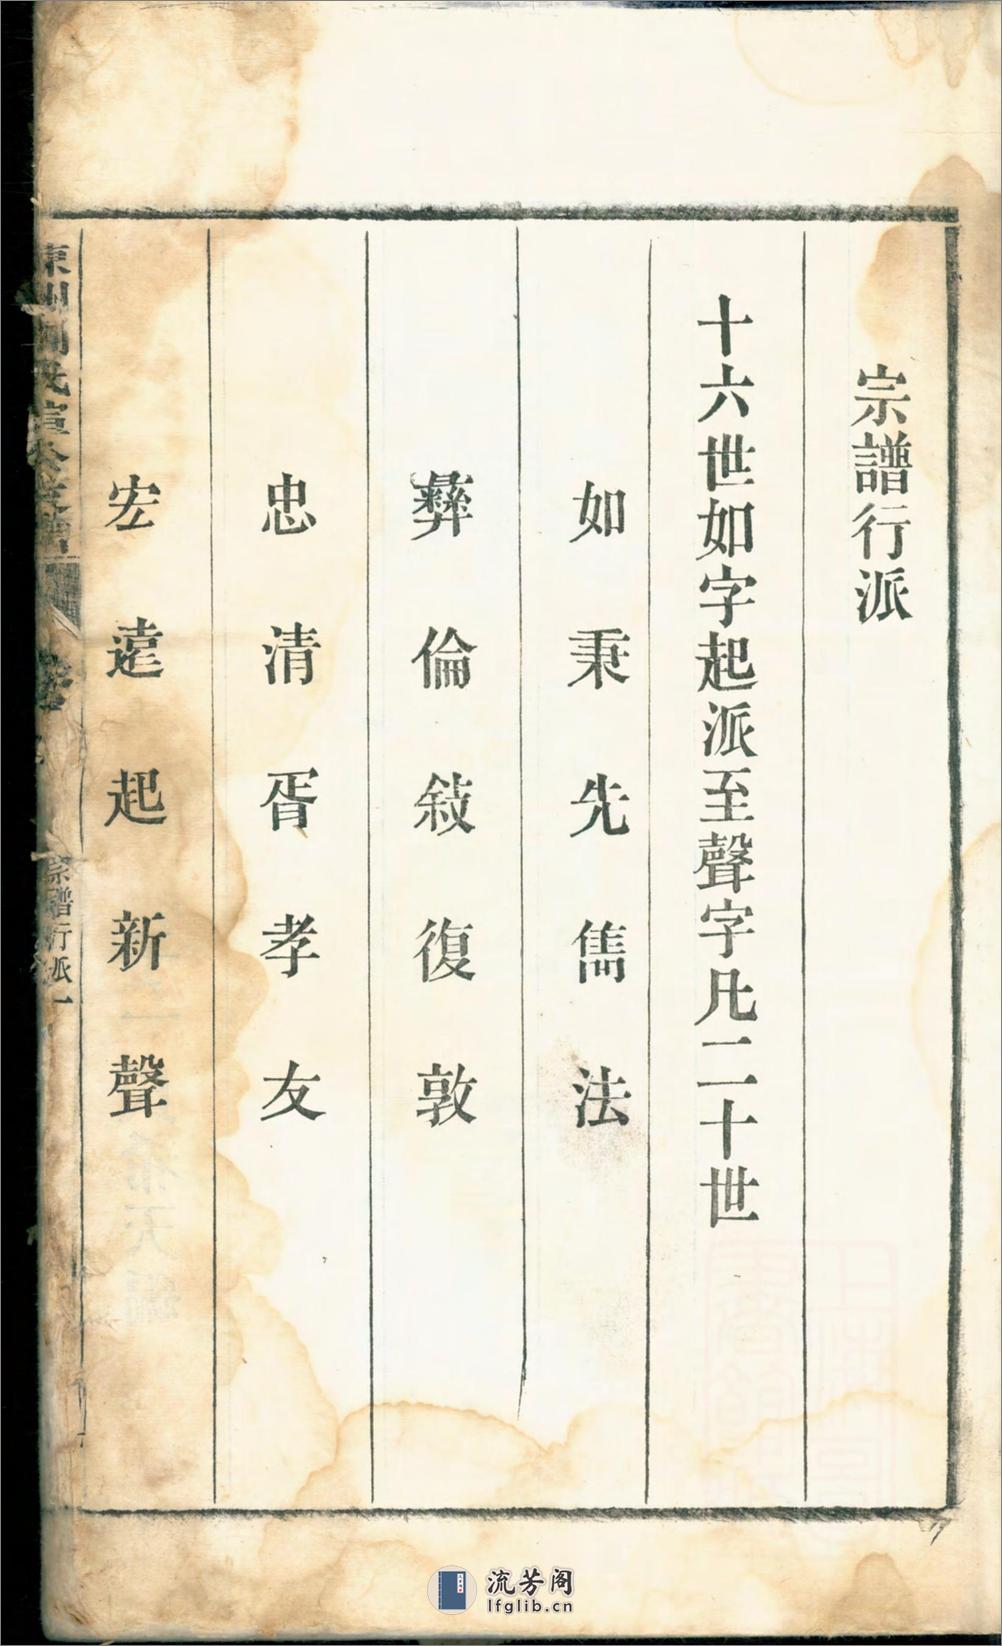 宗譜行派
十六世如字起派至聲字凡二十世
如秉先儁法
彝倫敍復敦
忠清胥孝友
宏遠起新聲
宗譜行派一
流芳阁
lfglib.cn